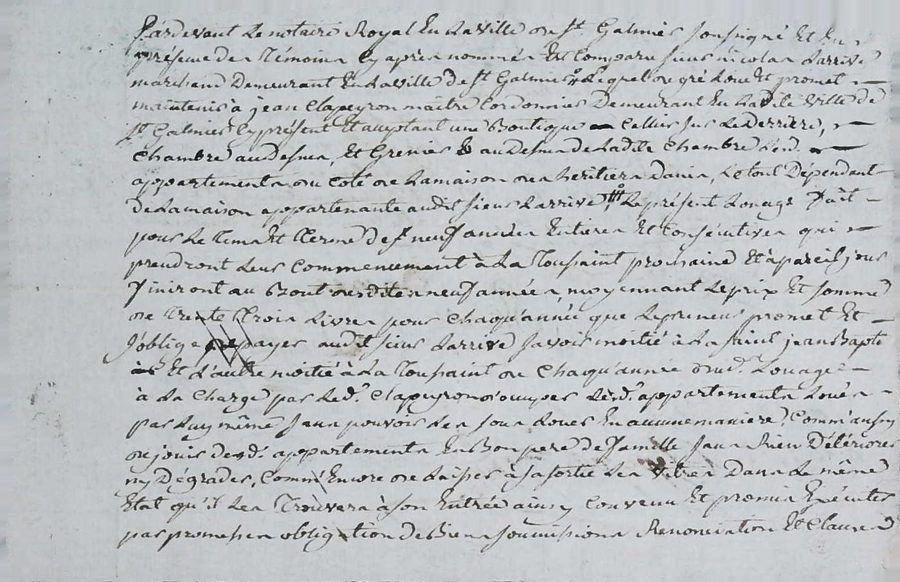 Pardevant Le notaire Royal En La ville de St Galmier soussigné Et En
présence des Témoins Cy après nommés Est Comparu sieur nicolas Larrivé
marchand Demeurant En La ville de St Galmier Lequel de gré Loue Et promet
maintenir à jean Clapeyron maitre Cordonnier Demeurant En Ladite ville de
St Galmier Cy présent Et acceptant une Boutique Cellier sur Le Derriere,
Chambre au dessus, Et Grenier au dessus de Ladite Chambre
appartements du Coté de La maison des heritiers Le tout Dépendant
de La maison appartenante audit sieur Larrivé, Le présent Louage fait
pour Le Tems Et Terme de neuf années Entieres Et Consécutives qui
prendront Leur Commencement à La Toussaint prochaine Et à pareil jour
finiront au Bout desdites neuf années, moyennant Le prix Et somme
de Trente Trois Livres pour Chaqu'année que Le preneur promet Et
s'oblige de payer audit sieur Larrivé savoir moitié à La saint jean Bapte
Et L'autre moitié à La Toussaint de Chaqu'année dud. Louage
à La Charge par Led. Clapeyron d'occuper Lesd. appartements Loués
par Luy même sans pouvoir Les sous Louer En aucune maniere, Comm'aussy
de jouir desd. appartements En Bon pere de famille sans Rien Détériorer
ny Dégrader, Comm'Encore de Laisser à sa sortie Les vitres Dans Le même
Etat qu'il Les Trouvera à son Entrée ainsy Convenu Et promis Exécuter
par promesses obligation de Biens soumissions Renonciation Et Clauses